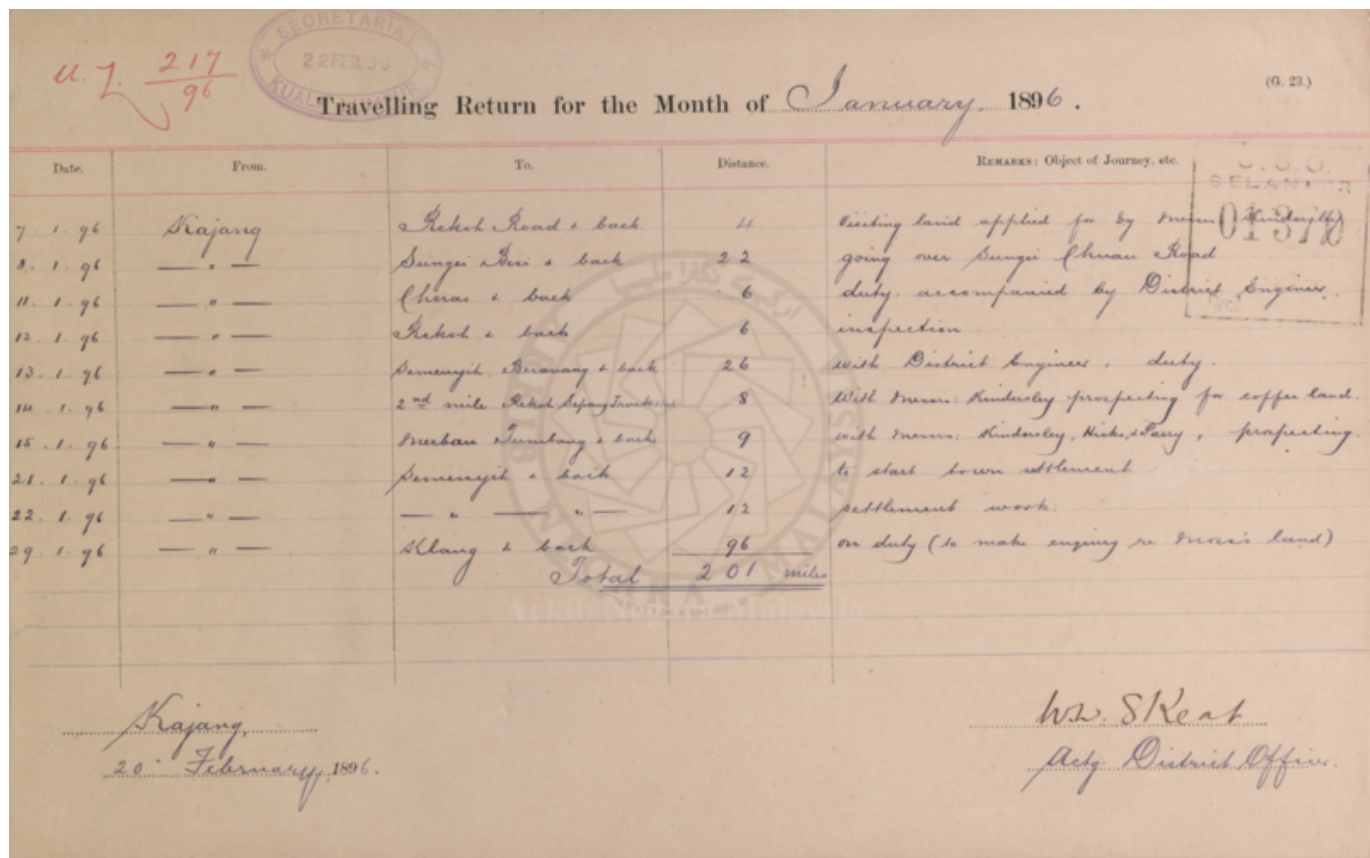 SECRETARIAT
22 FEB. 96
KUALA LUMPUR
217
96
(G. 23.)
Travelling Return for the Month of January 1896.
Date. From. To. Distance. REMARKS: Object of Journey, etc.
SELANGOR
7. 1. 96 Kajang Rekoh Road & back 4 Visiting land applied for by Messrs Kindersley
8. 1. 96 — " — Sungei Besi & back 22 going over Sungei Chuan Road
11. 1. 96 — " — Cheras & back 6 duty. accompanied by District Engineer.
12. 1. 96 — " — Rekoh & back 6 inspection
13. 1. 96 — " — Semenyih, Beranang & back 26 with District Engineer, duty.
14. 1. 96 — " — 2nd mile Rekoh Sepang 8 With Messrs: Kindersley prospecting for coffee land.
15. 1. 96 — " — Merbau Tumbang & back 9 with Messrs: Kindersley, Hicks, & Parry, prospecting.
21. 1. 96 — " — Semenyih & back 12 to start town settlement
22. 1. 96 — " — — " — " — 12 settlement work.
29. 1. 96 — " — Klang & back 96 on duty (to make enquiry re land)
Total 201 miles
Arkib Negara Malaysia
Kajang,
20 February, 1896.
W.W. Skeat
Actg District Officer.